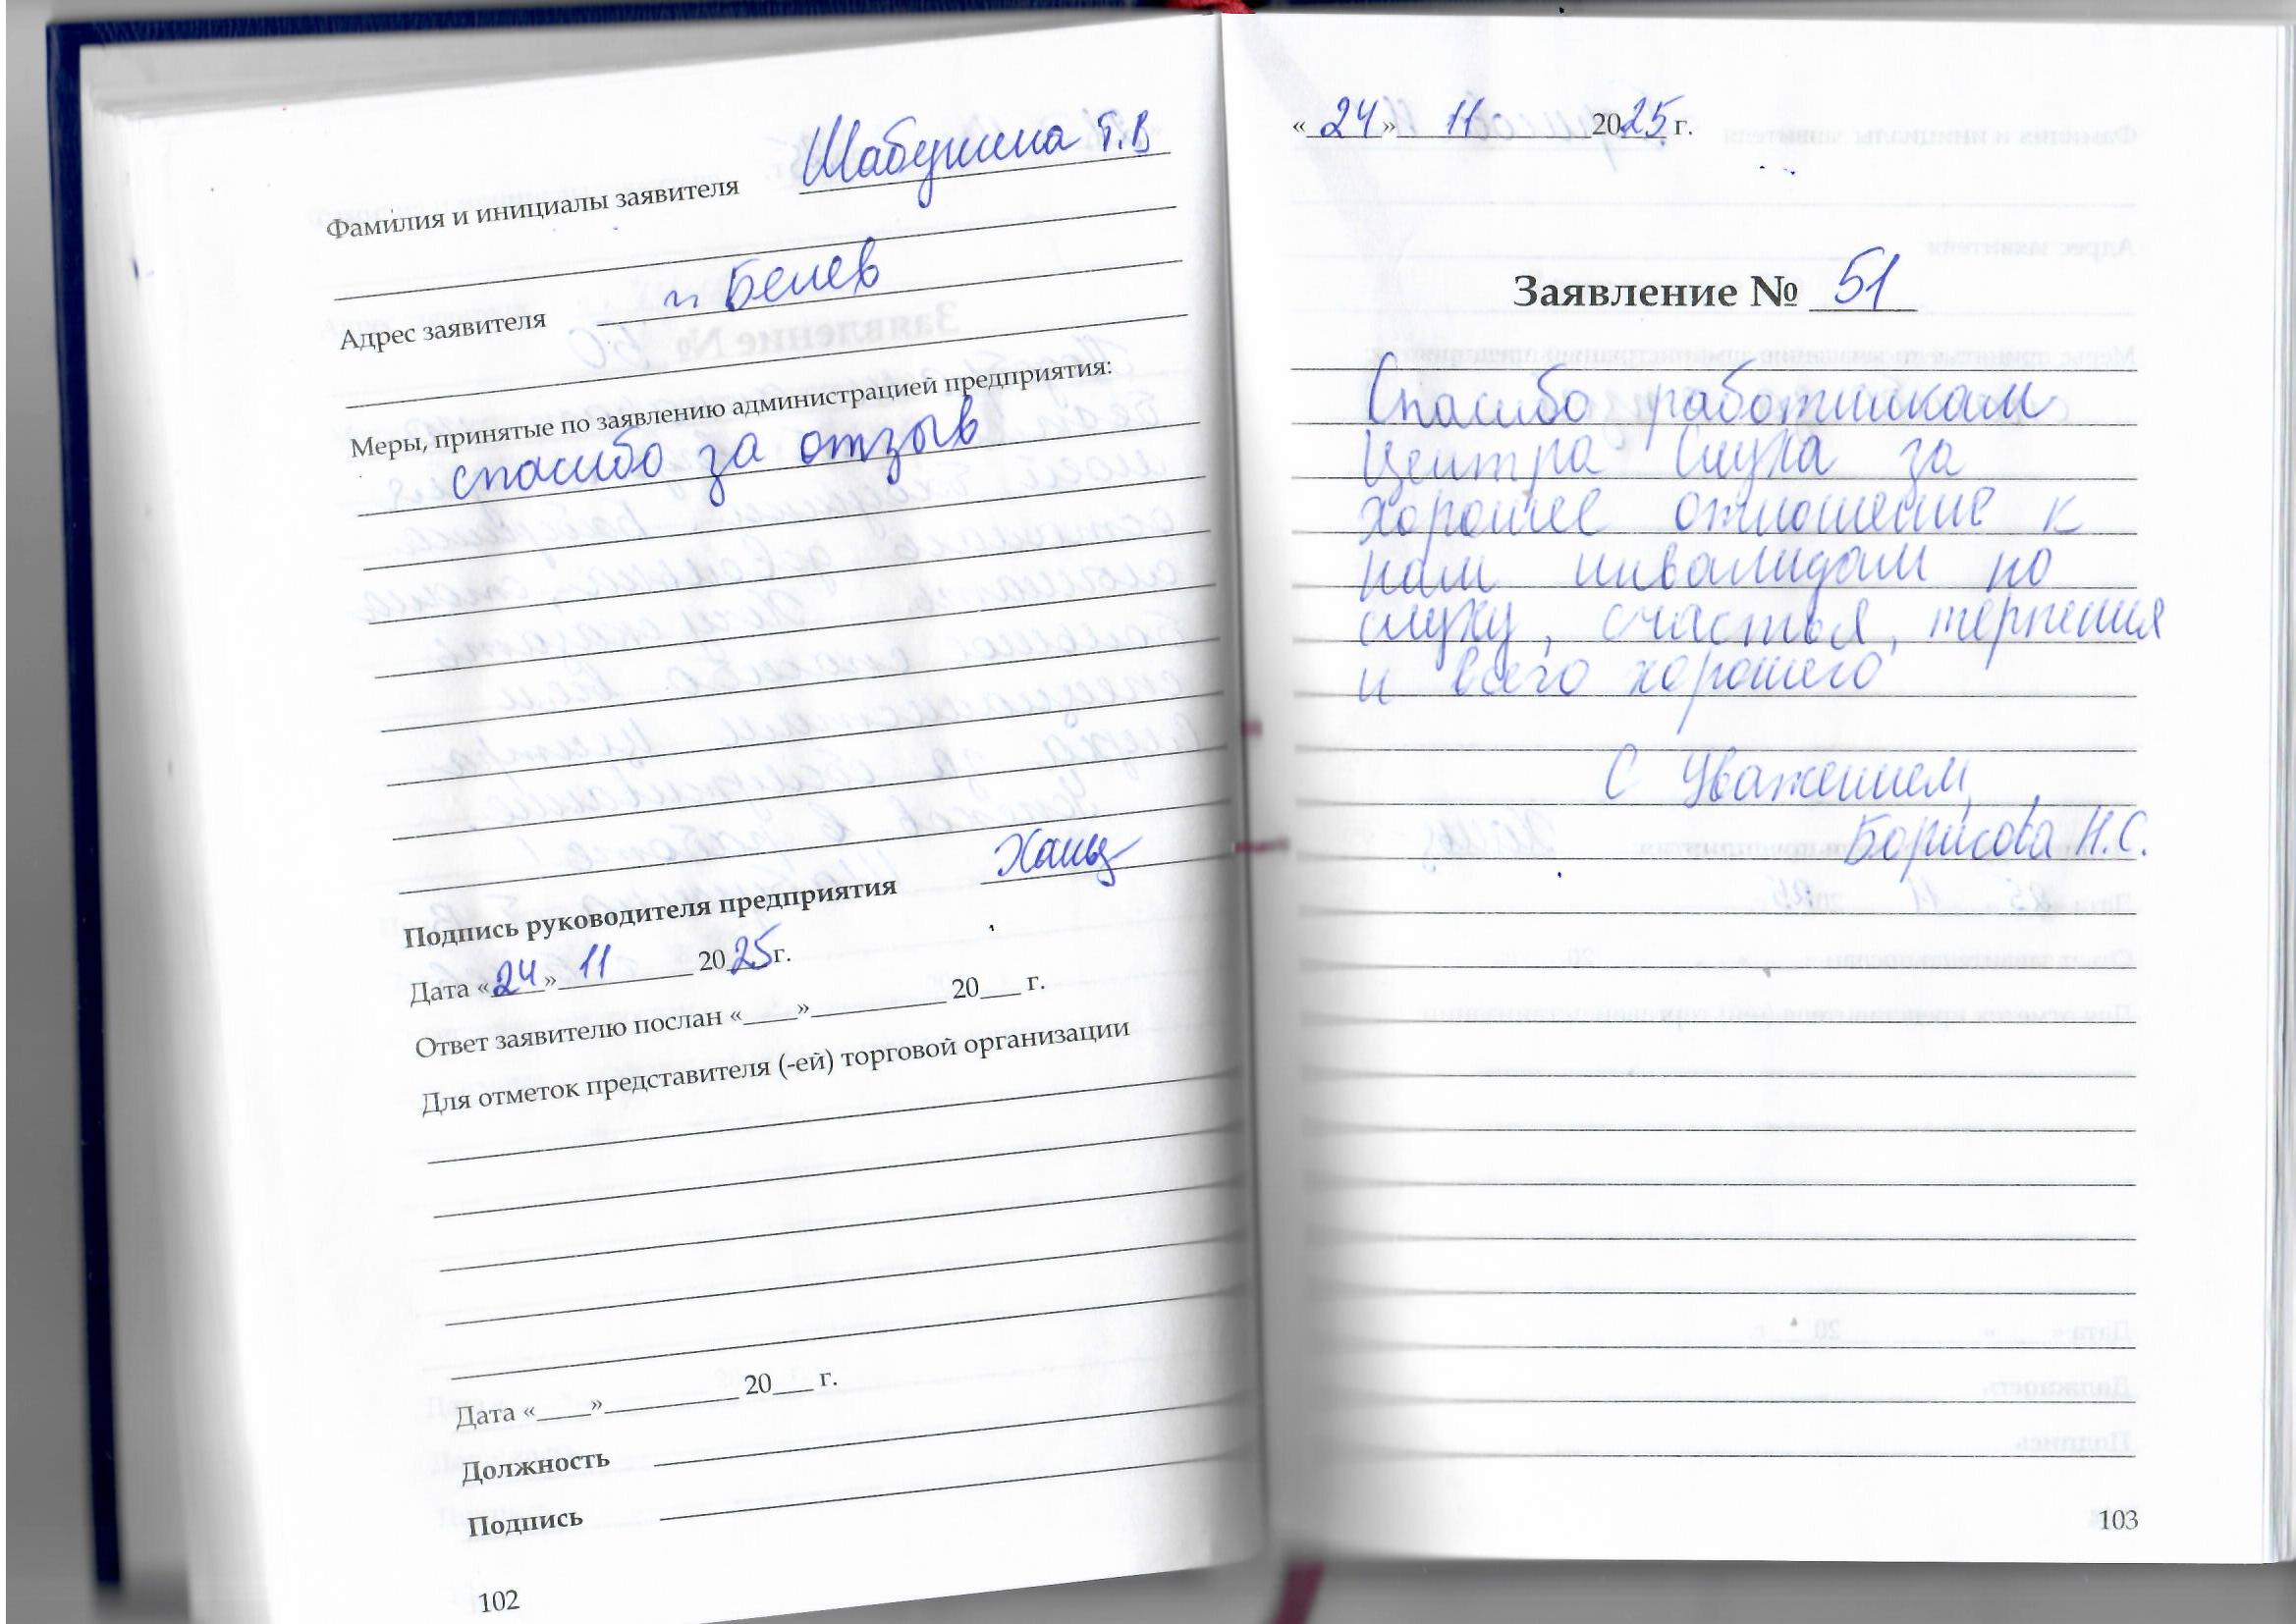 Фамилия и инициалы заявителя Шабунина Т.В
Адрес заявителя г. Белев
Меры, принятые по заявлению администрацией предприятия:
спасибо за отзыв
Подпись руководителя предприятия
Дата «24» 11 2025 г.
Ответ заявителю послан «____»__________ 20___ г.
Для отметок представителя (-ей) торговой организации
Дата «____»__________ 20___ г.
Должность
Подпись
102
«24» 11 2025 г.
Заявление № 51
Спасибо работникам
Центра Слуха за
хорошее отношение к
нам инвалидам по
слуху, счастья, терпения
и всего хорошего
С Уважением,
Борисова Н.С.
103